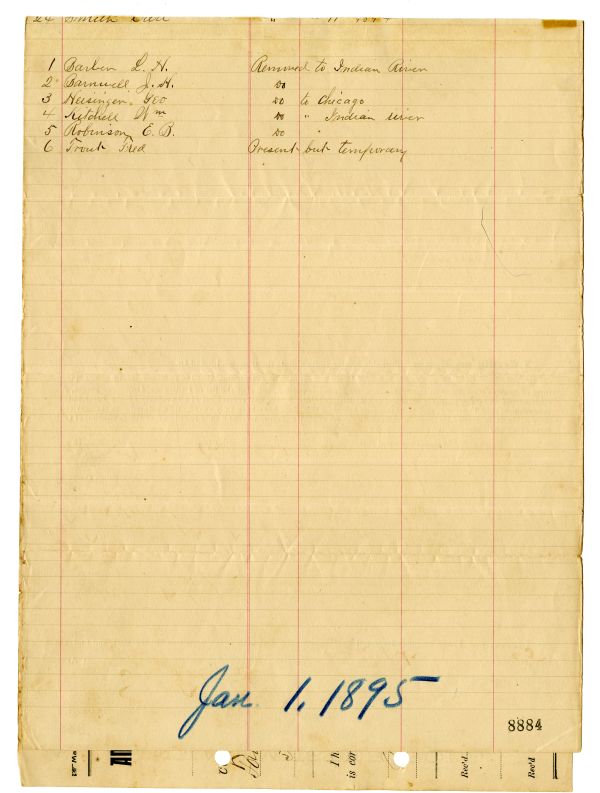 24 Smith Carl " " 11 1894
1 Barber L. H. Removed to Indian River
2 Barnwell J. H. do
3 Heisinger Geo do to Chicago
4 Mitchell Wm do " Indian river
5 Robinson E. B. do "
6 Trout Fred Present but temporary
Jan. 1. 1895
8884
is cor
Rec'd.
Rec'd